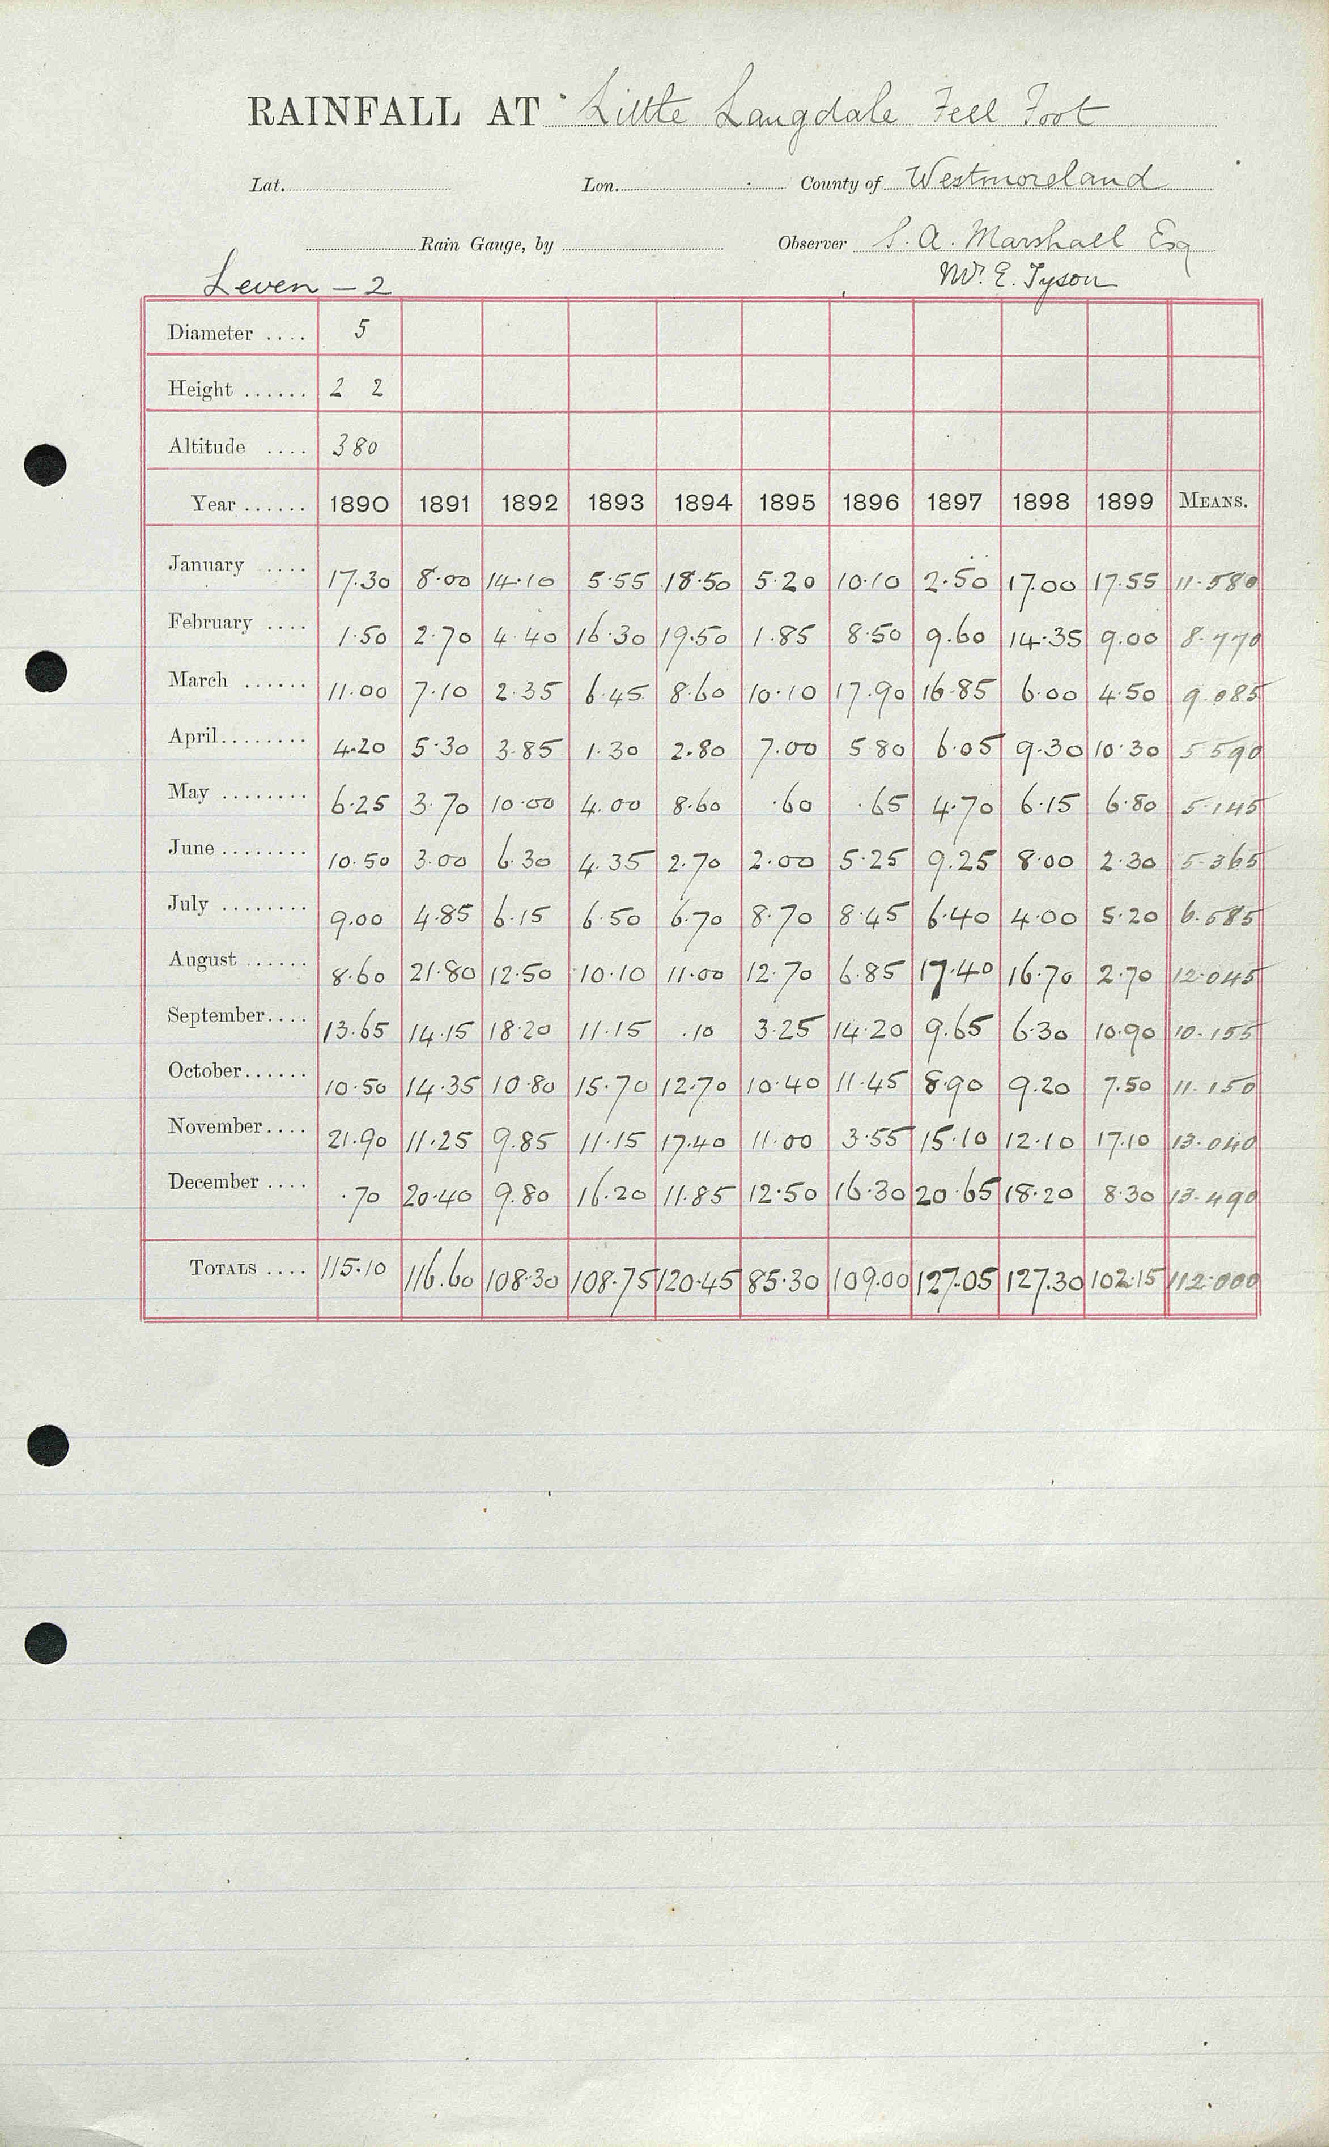 RAINFALL AT Little Langdale Fell Foot
Lat. Lon. County of Westmoreland
Rain Gauge, by Observer S. A. Marshall Esq
Leven - 2 Mr. E. Tyson
Diameter .... 5
Height ...... 2 2
Altitude .... 380
Year ...... 1890 1891 1892 1893 1894 1895 1896 1897 1898 1899 MEANS.
January .... 17.30 8.00 14.10 5.55 18.50 5.20 10.10 2.50 17.00 17.55 11.580
February .... 1.50 2.70 4.40 16.30 19.50 1.85 8.50 9.60 14.35 9.00 8.770
March ...... 11.00 7.10 2.35 6.45 8.60 10.10 17.90 16.85 6.00 4.50 9.085
April........ 4.20 5.30 3.85 1.30 2.80 7.00 5.80 6.05 9.30 10.30 5.590
May ........ 6.25 3.70 10.00 4.00 8.60 .60 .65 4.70 6.15 6.80 5.145
June ........ 10.50 3.00 6.30 4.35 2.70 2.00 5.25 9.25 8.00 2.30 5.365
July ........ 9.00 4.85 6.15 6.50 6.70 8.70 8.45 6.40 4.00 5.20 6.585
August ...... 8.60 21.80 12.50 10.10 11.00 12.70 6.85 17.40 16.70 2.70 12.045
September.... 13.65 14.15 18.20 11.15 .10 3.25 14.20 9.65 6.30 10.90 10.155
October...... 10.50 14.35 10.80 15.70 12.70 10.40 11.45 8.90 9.20 7.50 11.150
November.... 21.90 11.25 9.85 11.15 17.40 11.00 3.55 15.10 12.10 17.10 13.040
December .... .70 20.40 9.80 16.20 11.85 12.50 16.30 20.65 18.20 8.30 13.490
TOTALS .... 115.10 116.60 108.30 108.75 120.45 85.30 109.00 127.05 127.30 102.15 112.000